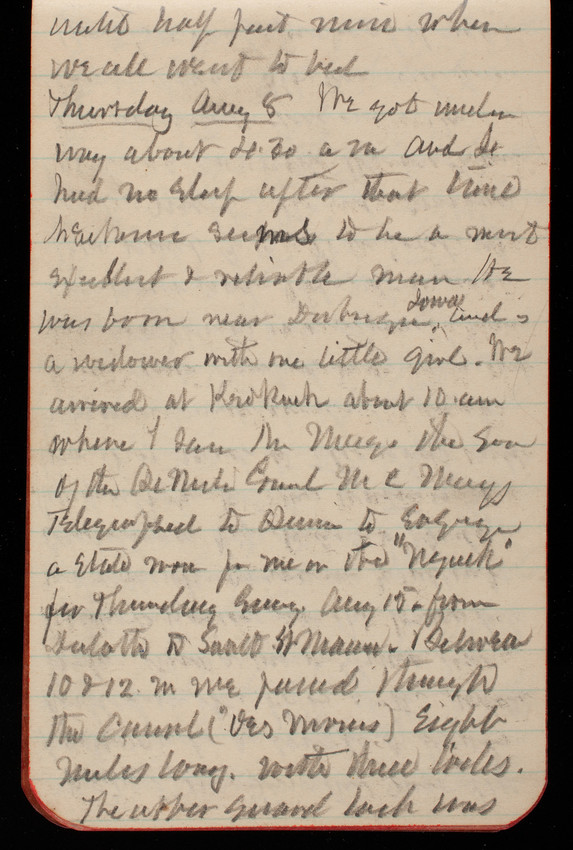 until half past nine when
we all went to bed
Thursday Aug 8 We got under
way about 4.30 a m and I
had no sleep after that time
seems to be a most
excellent & reliable man He
was born near Dubuque, Iowa and is
a widower with one little girl. We
arrived at Keokuck about 10 am
where I saw Mr Meigs the son
of the Genl M C Meigs
Telegraphed to to Engage
a State room for me on the "
for Thursday Aug 15. from
Duluth to Sault St Marie. Between
10 & 12 m we passed through
the Canal (Des Moines) Eight
miles long. with three locks.
The upper guard lock was